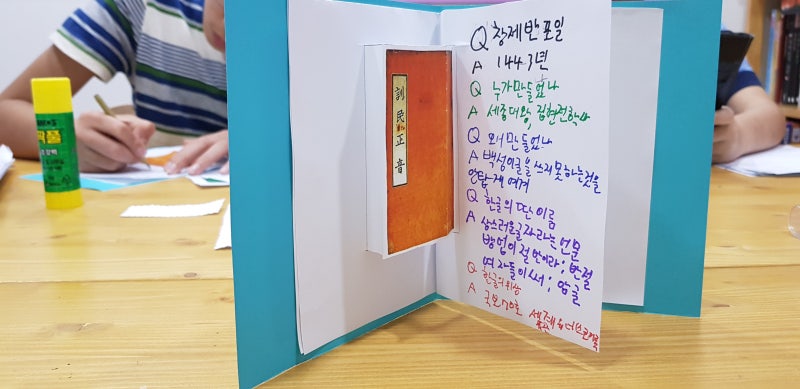 訓民正音
Q 창제반포일
A 1443년
Q 누가만들었나
A 세종대왕, 집현전학사
Q 왜만들었나
A 백성이글을쓰지못하는것을
안타깝게여겨
Q 한글의 딴이름
A 상스러운글자라는 언문
방법이절반이라; 반절
여자들이써서; 암글
Q 한글의위상
A 국보70호